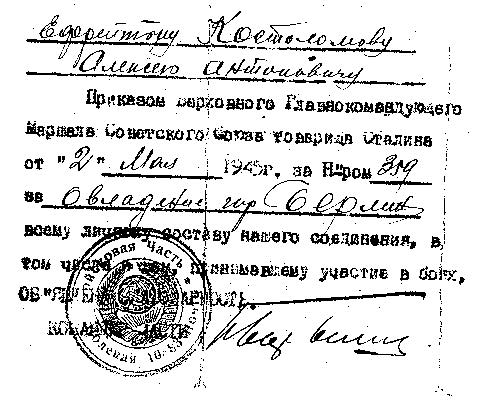 Ефрейтору Костоломову
Алексею Антоновичу
Приказом Верховного Главнокомандующего
Маршала Советского Союза товарища Сталина
от "2" Мая 1945г. за Н-ром 359
за Овладение гор Берлин
всему личному составу нашего соединения, в
том числе и принимавшему участие в боях,
ОБ"ЯВ
КОМАНДИР ЧАСТИ